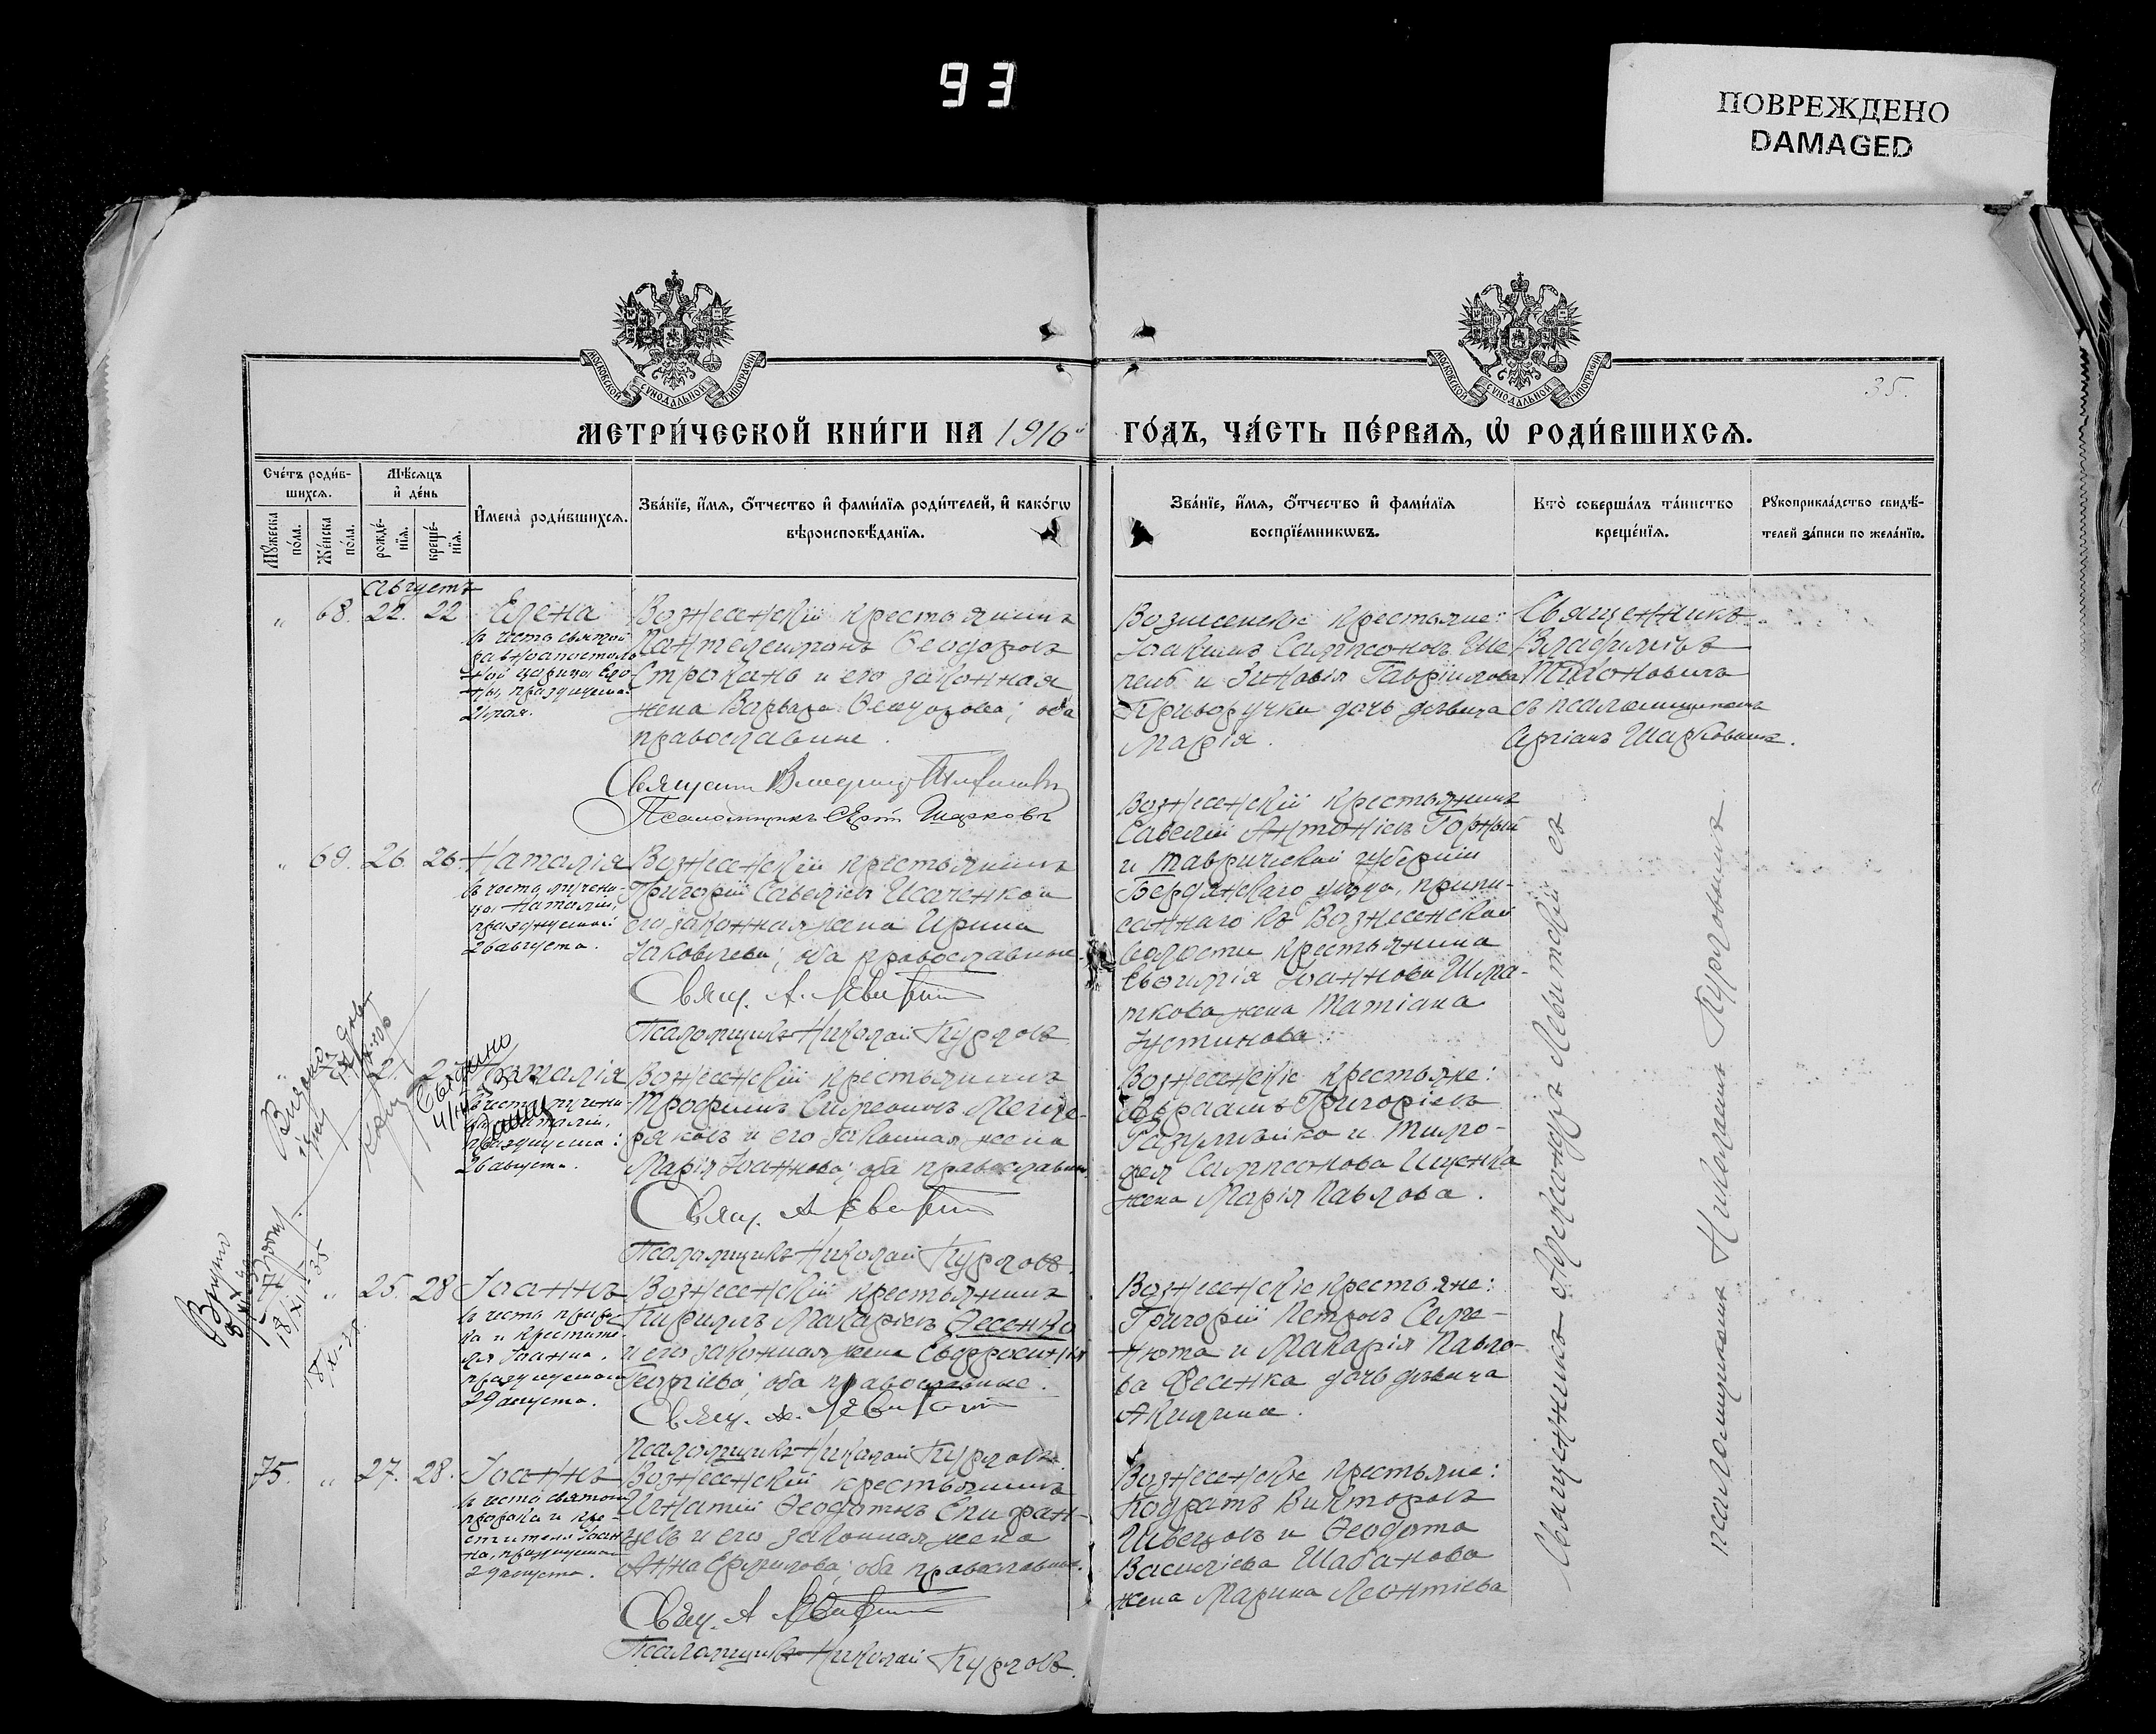 93
ПОВРЕЖДЕНО
DAMAGED
МОСКОВСКОЙ СѴНОДАЛЬНОЙ ТИПОГРАФІИ
МОСКОВСКОЙ СѴНОДАЛЬНОЙ ТИПОГРАФІИ
35.
МЕТРИ́ЧЕСКОЙ КНИ́ГИ НА 1916й ГО́ДЪ, ЧА́СТЬ ПЕ́РВАЯ, Ѡ҆ РОДИ́ВШИХСѦ.
Сче́тъ роди́в-
шихся.
Мѣ́сяцъ
и҆ де́нь
Мꙋ́жеска по́ла.
Же́нска по́ла.
рожде́-
нїя.
креще́-
нїя.
И҆мена̀ роди́вшихся.
Зва́нїе, и҆́мя, ѻ҆́тчество и҆ фами́лїя роди́телей, и҆ како́гѡ
вѣроисповѣ́данїя.
Зва́нїе, и҆́мя, ѻ҆́тчество и҆ фами́лїя
воспрїе́мникѡвъ.
Кто̀ соверша́лъ та́инство
креще́нїя.
Рꙋкоприкла́дство свидѣ́-
телей за́писи по жела́нїю.
Августъ
" 68. 22. 22 Елена
въ честь святой
равноапостоль-
ной царицы Еле-
ны, празднуема
21 мая.
Вознесенскій крестьянинъ
Пантелеимонъ Ѳеодоровъ
Строкань и его законная
жена Варвара Ѳеодорова; оба
православные.
Священникъ Владимиръ Тихоновичъ
Псаломщикъ Сергій Шарковъ
Вознесенскіе крестьяне:
Іоакимъ Сампсоновъ Ше-
пель и Зиновія Гавріилова
Криворучки дочь девица
Марія.
Священникъ
Владиміръ
Тихоновичъ
съ псаломщикомъ
Сергіемъ Шарковымъ.
" 69. 26 26 Наталія
въ честь мучени-
цы Наталіи,
празднуемой
26 августа.
Вознесенскій крестьянинъ
Григорій Савельевъ Исаченко и
его законная жена Ирина
Іаковлева; оба православные
Свящ. А. Левитскій
Псаломщикъ Николай Курловъ
Вознесенскій крестьянинъ
Савелій Антоніевъ Горный
и Таврической губерніи
Бердянскаго уезда, припи-
саннаго къ Вознесенской
волости крестьянина
Евфимія Іоаннова Шма-
ткова жена Татіана
Іустинова.
Наталія
въ честь мучени-
цы Наталіи,
празднуема:
26 августа.
Вознесенскій крестьянинъ
Трофимъ Симеоновъ Меще-
ряковъ и его законная жена
Марія Іоаннова; оба православные.
Свящ. А. Левитскій
Псаломщикъ Николай Курловъ.
Вознесенскіе крестьяне:
Авраамъ Григоріевъ
Разумейко и Тимо-
фея Сампсонова Ищенка
жена Марія Павлова.
" 25. 28 Іоаннъ
въ честь проро-
ка и крестите-
ля Іоанна,
празднуемаго
29 августа.
Вознесенскій крестьянинъ
Кириллъ Макаріевъ Ѳесенко
и его законная жена Евфросинія
Георгіева; оба православные.
Свящ. А. Левитскій
Псаломщикъ Николай Курловъ.
Вознесенскіе крестьяне:
Григорій Петровъ Семе-
нюта и Макарія Павло-
ва Ѳесенка дочь девица
Акилина.
75. " 27. 28. Іоаннъ
въ честь святого
пророка и кре-
стителя Іоан-
на, празднуемаго
29 августа.
Вознесенскій крестьянинъ
Игнатій Ѳеодотовъ Епифан-
цевъ и его законная жена
Анна Ефимова; оба православные.
Свящ. А Левитскій
Псаломщикъ Николай Курловъ.
Вознесенскіе крестьяне:
Кодратъ Викторовъ
Швецовъ и Ѳеодота
Василіева Шабанова
жена Марина Леонтіева
Священникъ Александръ Левитскій съ
псаломщикомъ Николаемъ Курловымъ.